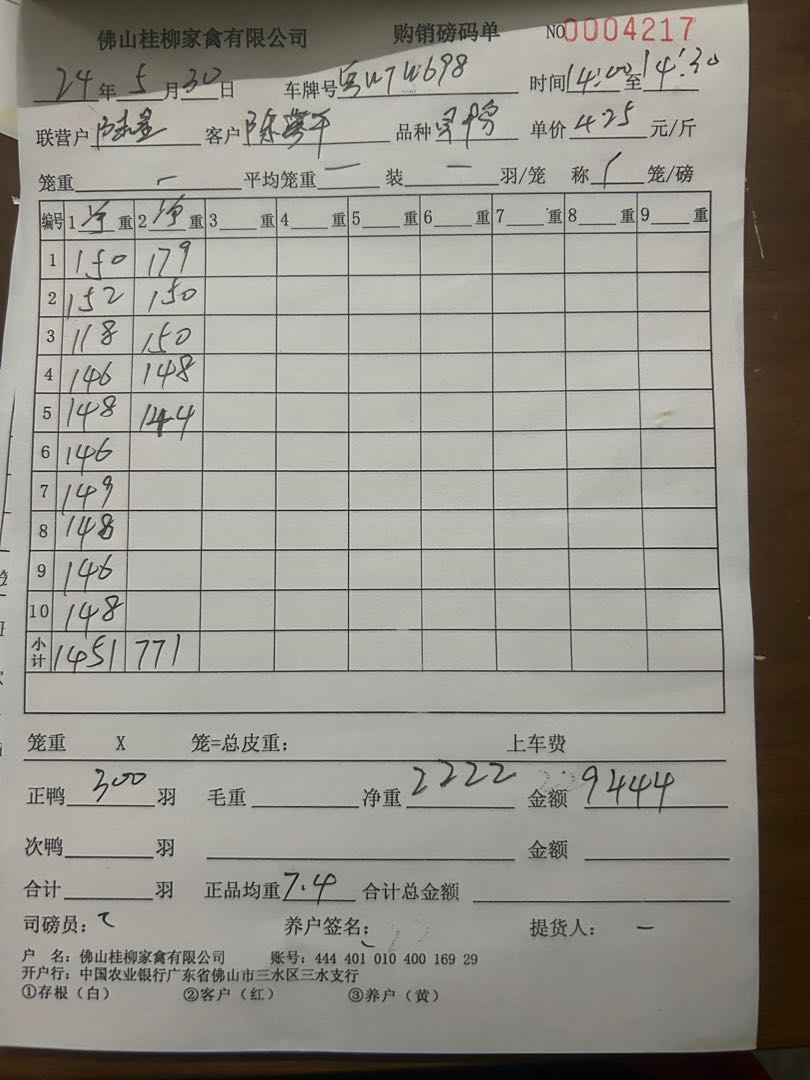 佛山桂柳家禽有限公司 购销磅码单 NO0004217
24年5月30日 车牌号粤W7W698 时间14:00至14:30
联营户 客户陈 品种 单价4.25元/斤
笼重— 平均笼重— 装—羽/笼 称 笼/磅
编号 1净重 2净重 3重 4重 5重 6重 7重 8重 9重
1 150 179
2 152 150
3 118 150
4 146 148
5 148 144
6 146
7 149
8 148
9 146
10 148
小计 1451 771
笼重 X 笼=总皮重: 上车费
正鸭300羽 毛重 净重2222 金额9444
次鸭 羽 金额
合计 羽 正品均重7.4 合计总金额
司磅员: 养户签名: 提货人: —
户 名: 佛山桂柳家禽有限公司 账号: 444 401 010 400 169 29
开户行: 中国农业银行广东省佛山市三水区三水支行
①存根(白) ②客户(红) ③养户(黄)